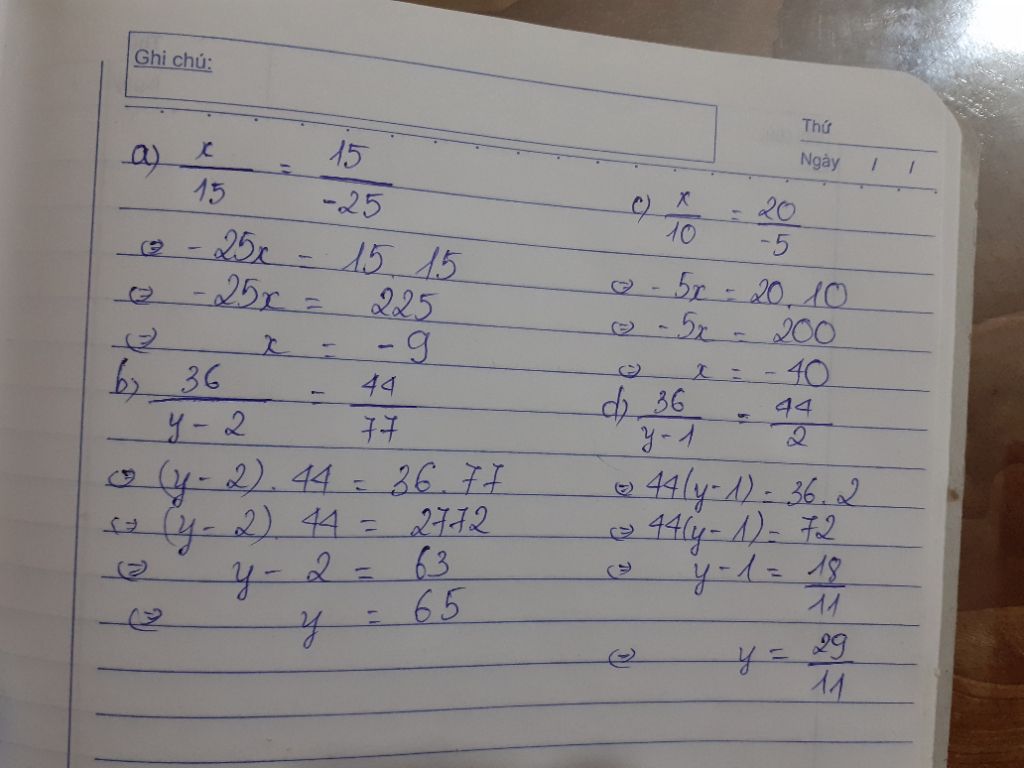 Ghi chú:
Thứ
Ngày / /
a) x/15 = 15/-25
⇔ -25x = 15.15
⇔ -25x = 225
⇔ x = -9
b) 36/(y-2) = 44/77
⇔ (y-2).44 = 36.77
⇔ (y-2).44 = 2772
⇔ y-2 = 63
⇔ y = 65
c) x/10 = 20/-5
⇔ -5x = 20.10
⇔ -5x = 200
⇔ x = -40
d) 36/(y-1) = 44/2
⇔ 44(y-1) = 36.2
⇔ 44(y-1) = 72
⇔ y-1 = 18/11
⇔ y = 29/11